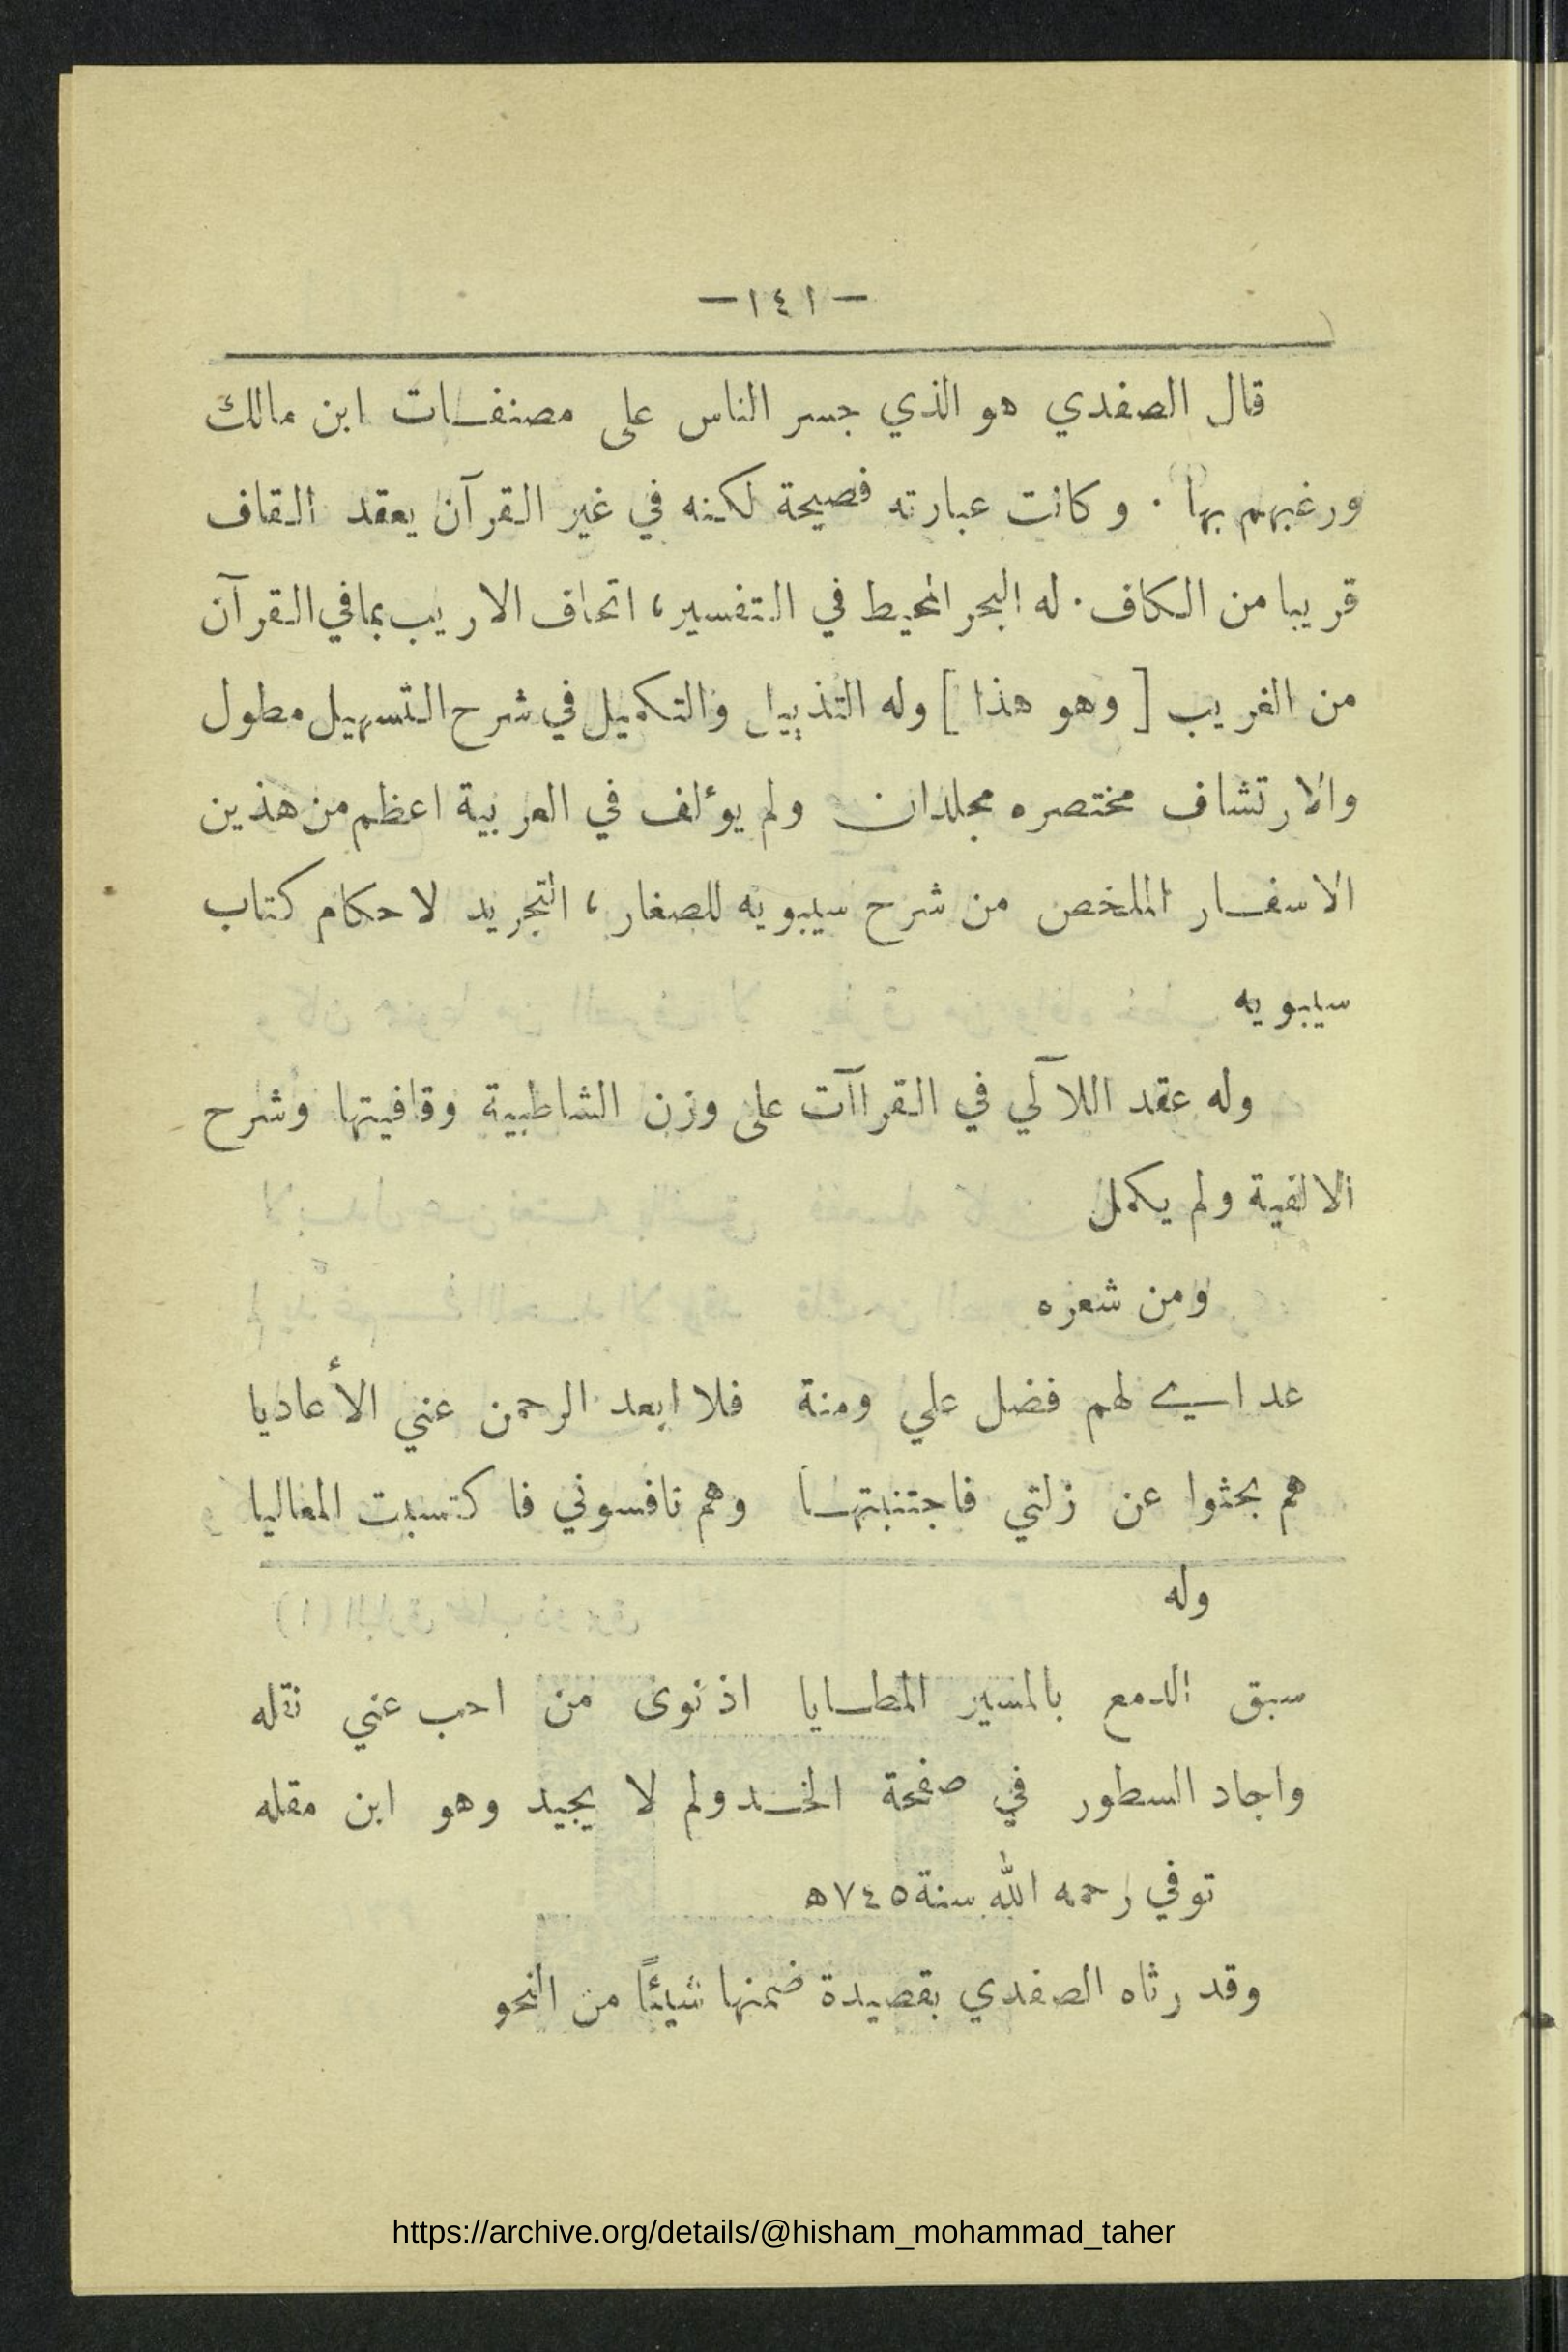 — ١٤١ —
قال الصفدي هو الذي جسر الناس على مصنفات ابن مالك
ورغبهم بها . وكانت عبارته فصيحة لكنه في غير القرآن يعقد القاف
قريبا من الكاف . له البحر المحيط في التفسير ، اتحاف الاريب بما في القرآن
من الغريب [ وهو هذا ] وله التذييل والتكميل في شرح التسهيل مطول
والارتشاف مختصره مجلدان ولم يؤلف في العربية اعظم من هذين
الاسفار الملخص من شرح سيبويه للصغار ، التجريد لاحكام كتاب
سيبويه
وله عقد اللآلي في القراآت على وزن الشاطبية وقافيتها وشرح
الالفية ولم يكمل
ومن شعره
عداي لهم فضل علي ومنة فلا ابعد الرحمن عني الأعاديا
هم بحثوا عن زلتي فاجتنبتها وهم نافسوني فاكتسبت المعاليا
وله
سبق الدمع بالمسير المطايا اذ نوى من احب عني نقله
واجاد السطور في صفحة الخد ولم لا يجيد وهو ابن مقله
توفي رحمه الله سنة ٧٤٥ ه
وقد رثاه الصفدي بقصيدة ضمنها شيئًا من النحو
https://archive.org/details/@hisham_mohammad_taher